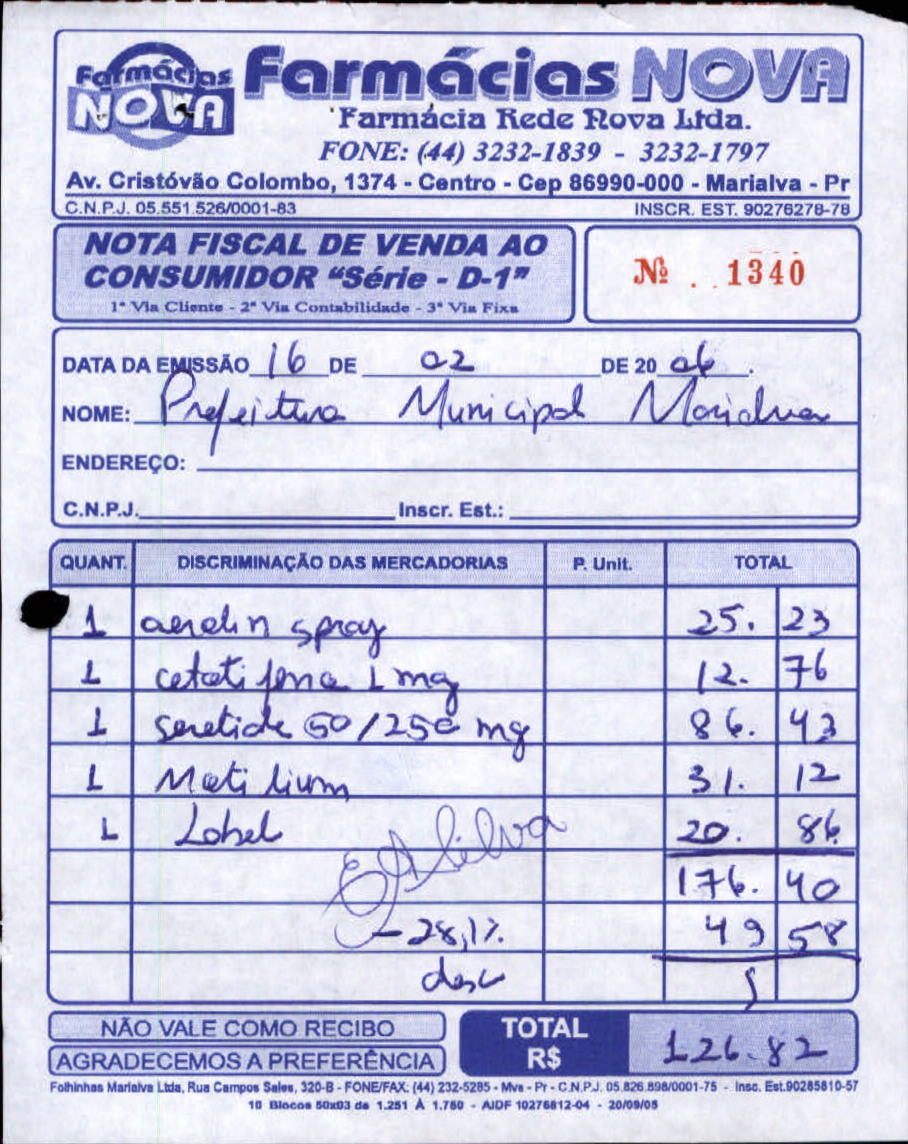 Farmácias NOVA
Farmácias NOVA
Farmácia Rede Nova Ltda.
FONE: (44) 3232-1839 - 3232-1797
Av. Cristóvão Colombo, 1374 - Centro - Cep 86990-000 - Marialva - Pr
C.N.P.J. 05.551.526/0001-83 INSCR. EST. 90276278-78
NOTA FISCAL DE VENDA AO CONSUMIDOR "Série - D-1"
1ª Via Cliente - 2ª Via Contabilidade - 3ª Via Fixa
Nº 1340
DATA DA EMISSÃO 16 DE 02 DE 20 06.
NOME: Prefeitura Municipal Marialva
ENDEREÇO:
C.N.P.J. Inscr. Est.:
QUANT. DISCRIMINAÇÃO DAS MERCADORIAS P. Unit. TOTAL
1 aerolin spray 25. 23
1 cetotifeno 1 mg 12. 76
1 seretide 50/250 mg 86. 43
1 Motilium 31. 12
1 Label 20. 86
EASilva
176. 40
- 28,1% 49 58
desc
NÃO VALE COMO RECIBO
AGRADECEMOS A PREFERÊNCIA
TOTAL R$ 126.82
Folhinhas Marialva Ltda, Rua Campos Sales, 320-B - FONE/FAX: (44) 232-5285 - Mva - Pr - C.N.P.J. 05.826.898/0001-75 - Insc. Est.90285810-57
10 Blocos 50x03 de 1.251 À 1.750 - AIDF 10276812-04 - 20/09/05